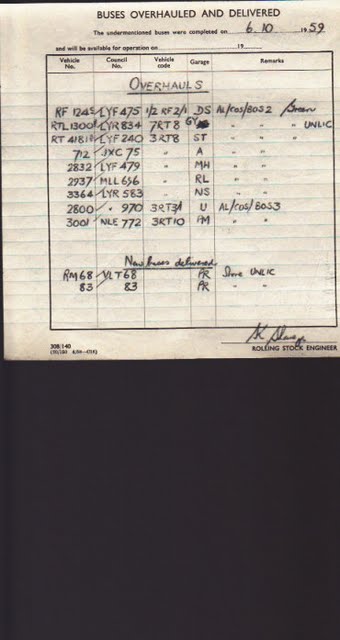 BUSES OVERHAULED AND DELIVERED
The undermentioned buses were completed on 6.10 1959
and will be available for operation on 19
Vehicle No. Council No. Vehicle code Garage Remarks
OVERHAULS
RF 124 LYF 475 1/2 RF2/1 DS AL/COS/BOS2 Green
RTL1300 LYR 834 7RT8 GY " " " UNLIC
RT 4181 LYF 240 3RT8 ST " "
712 JXC 75 " A " "
2832 LYF 479 " MH " "
2937 MLL 656 " RL " "
3364 LYR 583 " NS " "
2800 " 970 3RT3/1 U AL/COS/BOS3
3001 NLE 772 3RT10 PM " "
New buses delivered
RM68 VLT 68 PR UNLIC
83 83 PR " "
308/140
ROLLING STOCK ENGINEER